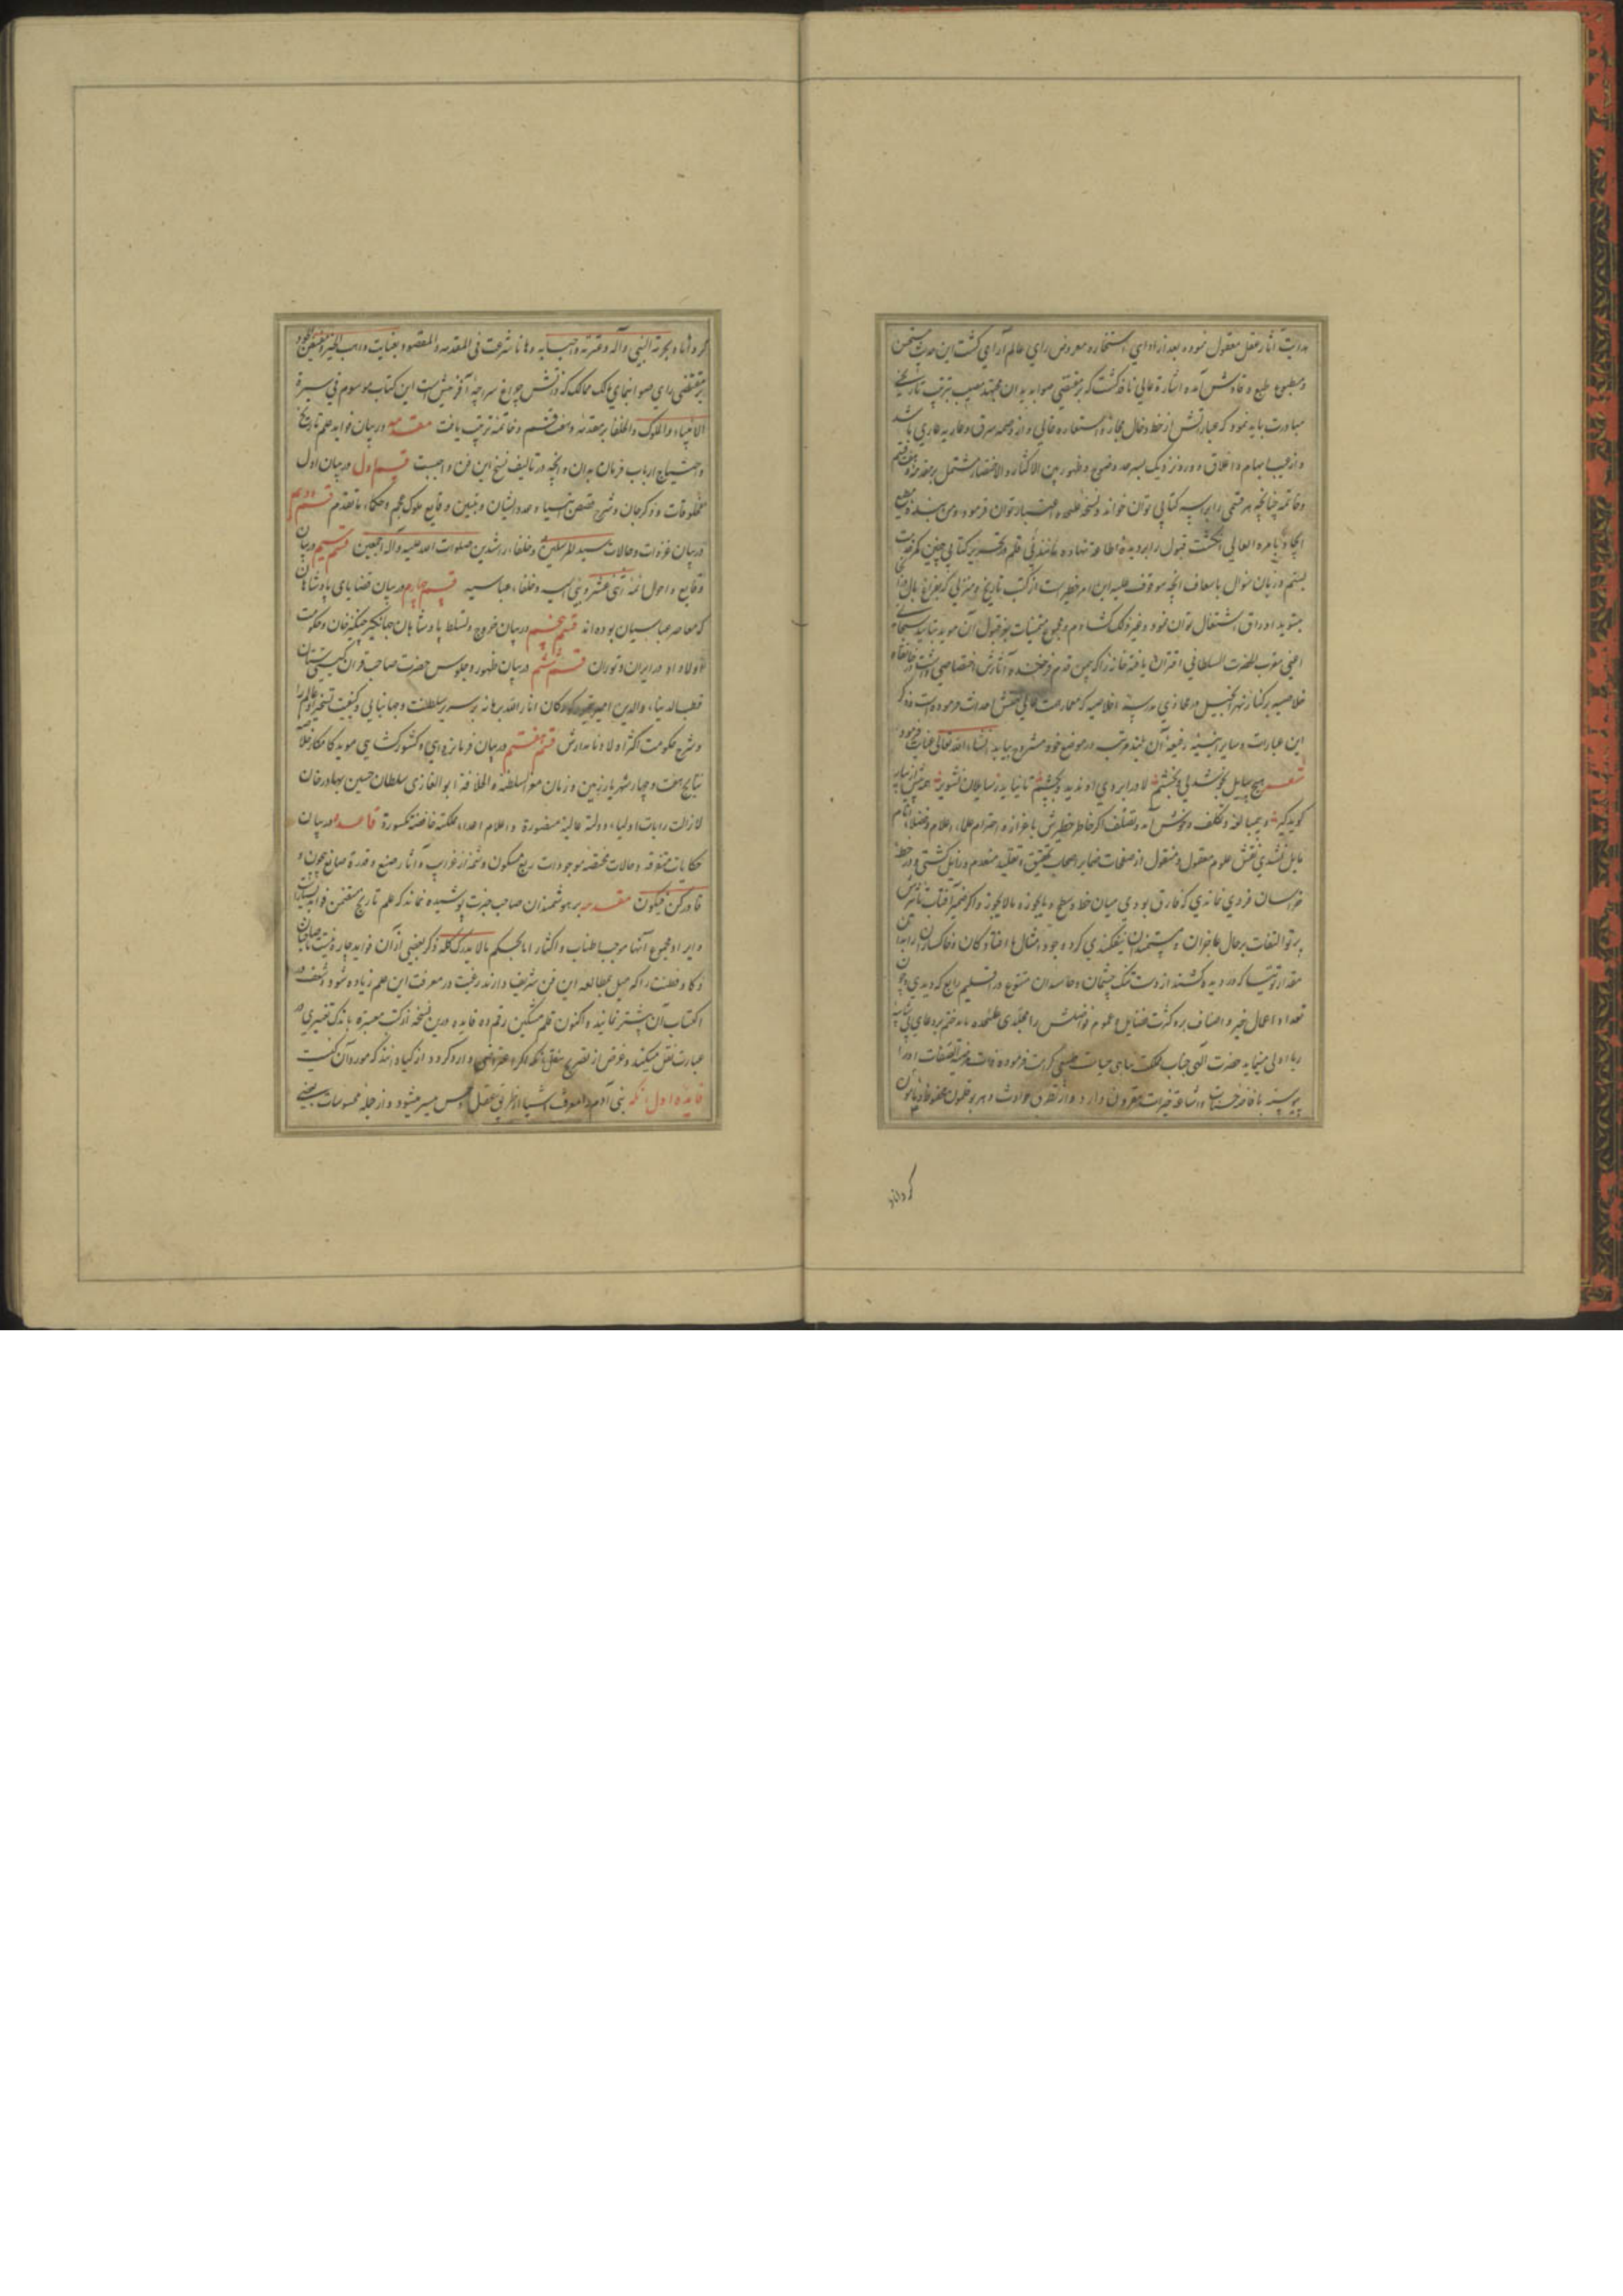 هدایت آثار عقل معقول نموده بعد از ادای استخاره معروض رای عالم آرای گشت این حدیث مستحسن
و مطبوع طبع وقادش آمده اشارة عالی نافذ گشت که بر مقتضی صوابدید آن مجتهد مصیب بترتیب تاریخی
مبادرت باید نمود که عباراتش از خط و خال مجاز و استعاره خالی و از وصمه سرق و عاریه عاری باشد
و از عیب ابهام و اغلاق دور و نزدیک بسرحد وضوح و ظهور بین الاکثار و الاختصار مشتمل بر مقدمه و هفت قسم
و خاتمه چنانچه هر قسمی را براسه کتابی توان خواند و نسخه علیحده اعتبار توان فرمود و من بنده مطیع
بامره العالی انگشت قبول را بر دیده اطاعة نهاده مانند نی قلم در تحریر کتابی چنین کمر خدمت
بستم و زبان سوال باسعاف انچه موقوف علیه این امر خطیر است از کتب تاریخ و منزلی که بفراغ بال در آنجا
بتسوید اوراق اشتغال توان نمود و غیر ذلک گشادم و مجموع متمنیات بعز قبول آن موید بتایید سبحانی
اعنی مقرب الحضرت السلطانی اقتران یافته خانه که بیمن قدم فرخنده آثارش اختصاصی داشت در خانقاه
خلاصیه بر کنار نهر انجیل در محاذی مدرسه اخلاصیه که معمار همت عالی احداث فرموده است و ذکر
این عبارات و سایر ابنیه رفیعه آن بلند مرتبه در موضع خود مشروح بیاید انشاء الله تعالی عنایت فرمود
شعر هیچ سایل بخوشدلی و بخشم لا در ابروی او ندید بچشم تا نیابد ز سایلان تشویر
گوید گیر و بیمبالغه و تکلف و خوش آمد و تصلف اگر خاطر خطیرش باعزاز و احترام علماء اعلام و فضلاء انام
مایل نشدی نقش علوم معقول و منقول از صفحات ضمایر اصحاب تحقیق و تقلید منعدم و زایل گشتی و در خطه
خراسان فردی نماندی که فارق بودی میان خط و سطح و ما یجوز و مالا یجوز و اگر ضمیر آفتاب تاثیرش
پرتو التفات بر حال عاجزان و مستمندان نیفکندی گرد وجود امثال ما افتادگان و خاکساران را
مقدار توتیا که در دیده کشند از دست تنگ چشمان و حاسدان متنوع در اقلیم رابع که دیدی و چون
تعداد اعمال خیر و اصناف بر و کثرت فضایل و عموم فواضلش را مجلدی علیحده باید ختم بر دعای بی شایبه
ریا اولی مینماید حضرت الهی جناب مملکت پناهی حیات طبیعی کرامت فرموده ذات مرضیة الصفات او را
پیوسته بافاضه حسنات و اشاعة خیرات مقرون دارد و از تطرق حوادث دهر بوقلمون محفوظ و مامون
گرداند
گرداناد بحرمة النبی و آله و عترته و احبابه و ها انا شرعت فی المقدمه و المقصود بعنایت واهب الخیر و مفیض الجود
بر مقتضی رای صواب نمای مالک ممالک که ذاتش چراغ سراچۀ آفرینش است این کتاب موسوم فی سیرة
الانبیاء و الملوک و الخلفا بر مقدمه و هفت قسم و خاتمة ترتیب یافت مقدمه در بیان فواید علم تاریخ
و احتیاج ارباب فرمان بدان و انچه در تالیف نسخ این فن واجبست قسم اول در بیان اول
مخلوقات و ذکر جان و شرح قصص انبیاء و عدد ایشان و تبیین وقایع ملوک عجم و حکماء ما تقدم قسم دویم
در بیان غزوات و حالات سید المرسلین و خلفاء راشدین صلوات الله علیه و آله اجمعین قسم سیم در بیان
وقایع و احوال ائمه اثنی عشر و بنی امیه و خلفاء عباسیه قسم چهارم در بیان قضایای پادشاهان
که معاصر عباسیان بوده‌اند قسم پنجم در بیان خروج و تسلط پادشاهان جهانگیر چنگیز خان و حکومت
اولاد او در ایران و توران قسم ششم در بیان ظهور و جلوس حضرت صاحب قران گیتی ستان
قطب الدنیا و الدین امیر تیمور کورکان انار الله برهانه بر سریر سلطنت و جهانبانی و کیفیت تسخیر او عالم را
و شرح حکومت اکثر اولاد نامدارش قسم هفتم در بیان فرمانروای و کشور گشایی موید کامکار خلاصه
نتایج هفت و چهار شهریار زمین و زمان معز السلطنه و الخلافة ابو الغازی سلطان حسین بهادر خان
لازالت رایات اولیاء دولته عالیة منصورة و اعلام اعداء مملکته خافضة مکسورة قاعده در بیان
حکایات متفرقه و حالات مختصه موجودات ربع مسکون و شمه از غرایب و آثار صنع و قدرة صانع بیچون و
قادر کن فیکون مقدمه بر هوشمندان صاحب خبرت پوشیده نماند که علم تاریخ متضمن فواید بسیارست
و ایراد مجموع آنها موجب اطناب و اکثار اما بحکم مالا یدرک کله ذکر بعضی از آن فواید چاره نیست تا صاحبان
ذکا و فطنت را که میل بمطالعه این فن شریف دارند رغبت در معرفت این علم زیاده شود و شعف در
اکتساب آن بیشتر نمایند و اکنون قلم مشکین رقم ده فایده درین نسخه از کتب معتبره باندک تغییری در
عبارت نقل میکند و غرض از تصریح بنقل آنکه اگر اعتراضی وارد گردد ازکیا دانند که مورد آن کیست
فایده اول آنکه بنی آدم را معرفت اشیا از طریق عقل و حس میسر میشود و از جمله محسوسات بعضی